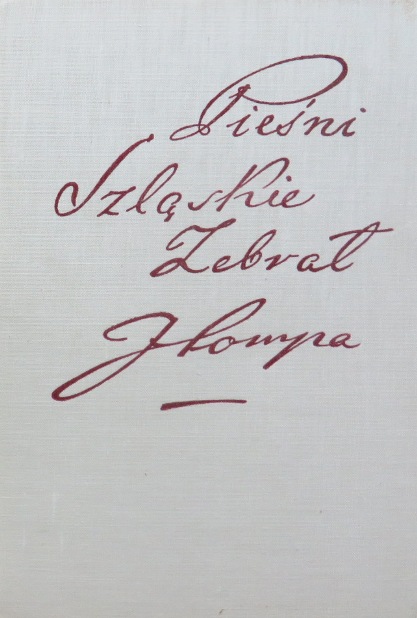 Pieśni
Szląskie
Zebrał
JLompa